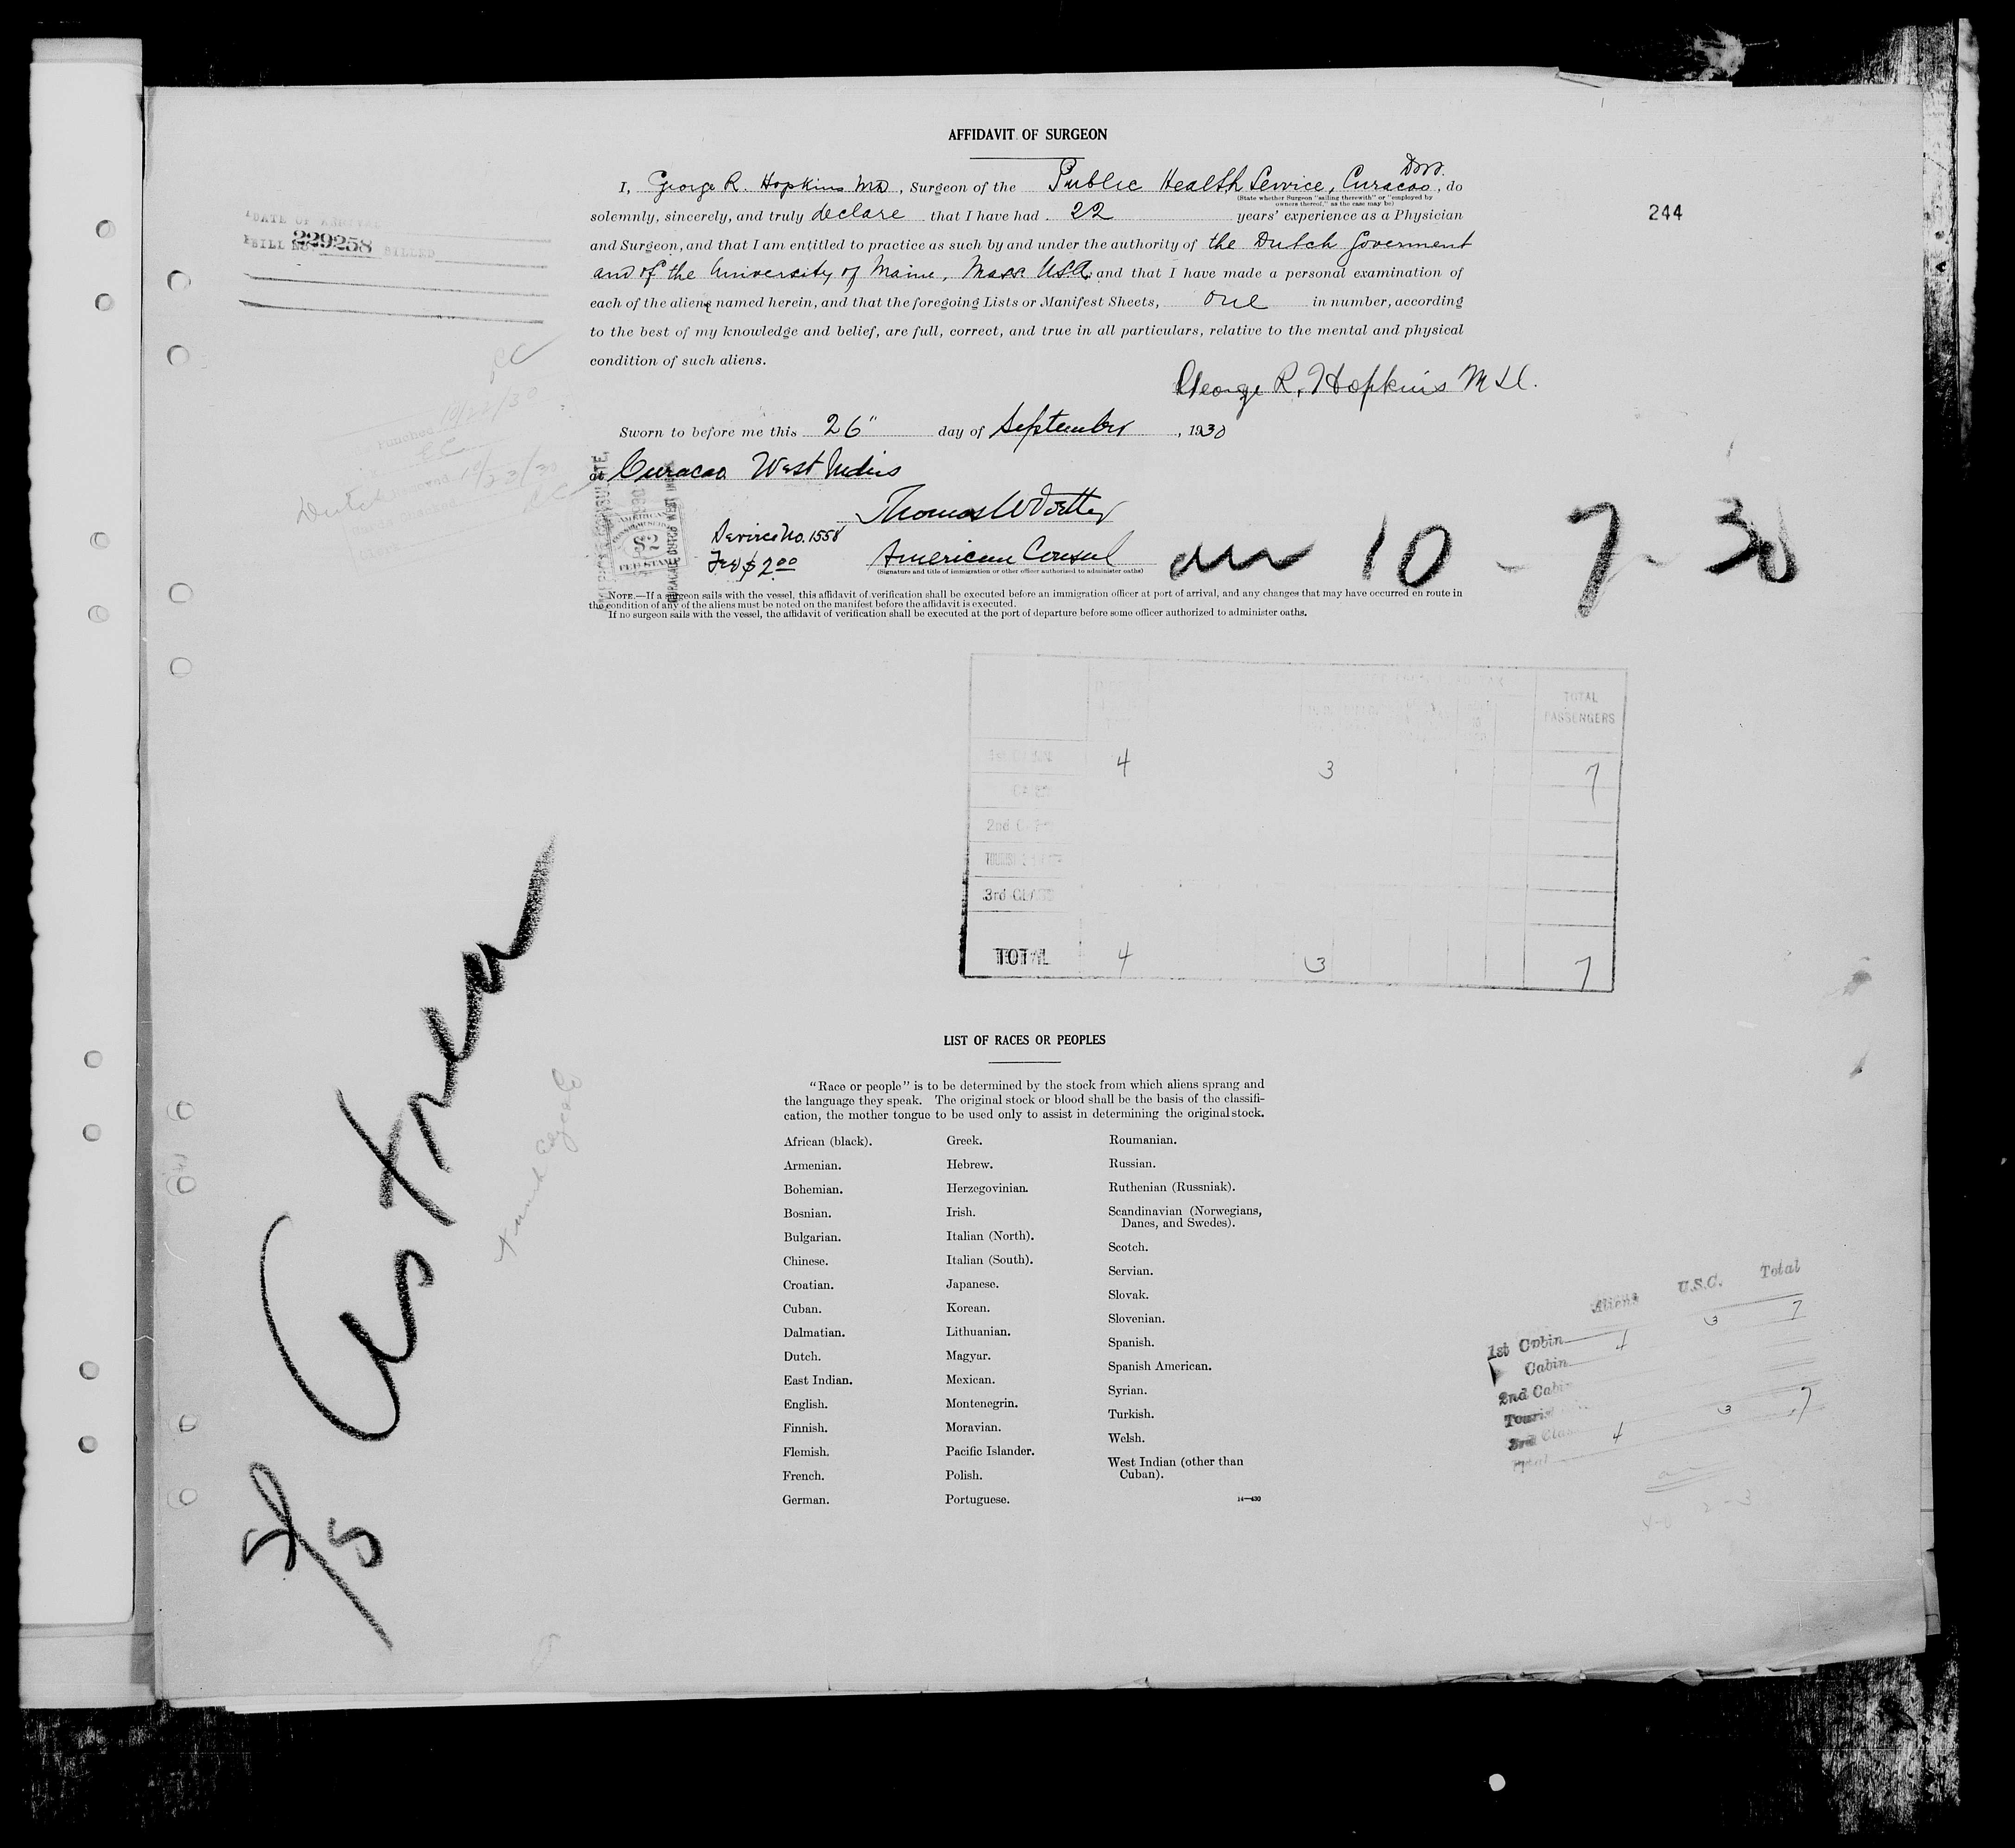 AFFIDAVIT OF SURGEON
244
I, George R. Hopkins MD, Surgeon of the Public Health Service, Curacao, D.W.I., do
(State whether Surgeon "sailing therewith" or "employed by
owners thereof," as the case may be)
solemnly, sincerely, and truly declare that I have had 22 years' experience as a Physician
and Surgeon, and that I am entitled to practice as such by and under the authority of the Dutch Goverment
and of the University of Maine, Mass USA and that I have made a personal examination of
each of the aliens named herein, and that the foregoing Lists or Manifest Sheets, one in number, according
to the best of my knowledge and belief, are full, correct, and true in all particulars, relative to the mental and physical
condition of such aliens.
George R. Hopkins M.D.
Sworn to before me this 26" day of September, 1930
at Curacao West Indies
Thomas W
American Consul
(Signature and title of immigration or other officer authorized to administer oaths)
Service No. 1558
Fee $2.00
NOTE.—If a surgeon sails with the vessel, this affidavit of verification shall be executed before an immigration officer at port of arrival, and any changes that may have occurred en route in
the condition of any of the aliens must be noted on the manifest before the affidavit is executed.
If no surgeon sails with the vessel, the affidavit of verification shall be executed at the port of departure before some officer authorized to administer oaths.
DATE OF ARRIVAL
BILL NO. 229258 BILLED
Punched 10/22/30
Dutch
10/22/30
10-7-30
TOTAL PASSENGERS
1st CABIN 4 3 7
CABIN
2nd CABIN
TOURIST
3rd CLASS
TOTAL 4 3 7
Astrea
S/S
LIST OF RACES OR PEOPLES
"Race or people" is to be determined by the stock from which aliens sprang and
the language they speak. The original stock or blood shall be the basis of the classifi-
cation, the mother tongue to be used only to assist in determining the original stock.
African (black).
Armenian.
Bohemian.
Bosnian.
Bulgarian.
Chinese.
Croatian.
Cuban.
Dalmatian.
Dutch.
East Indian.
English.
Finnish.
Flemish.
French.
German.
Greek.
Hebrew.
Herzegovinian.
Irish.
Italian (North).
Italian (South).
Japanese.
Korean.
Lithuanian.
Magyar.
Mexican.
Montenegrin.
Moravian.
Pacific Islander.
Polish.
Portuguese.
Roumanian.
Russian.
Ruthenian (Russniak).
Scandinavian (Norwegians,
Danes, and Swedes).
Scotch.
Servian.
Slovak.
Slovenian.
Spanish.
Spanish American.
Syrian.
Turkish.
Welsh.
West Indian (other than
Cuban).
14—430
Aliens U.S.C. Total
1st Cabin 4 3 7
Cabin
2nd Cabin
Tourist
3rd Class
Total 4 3 7